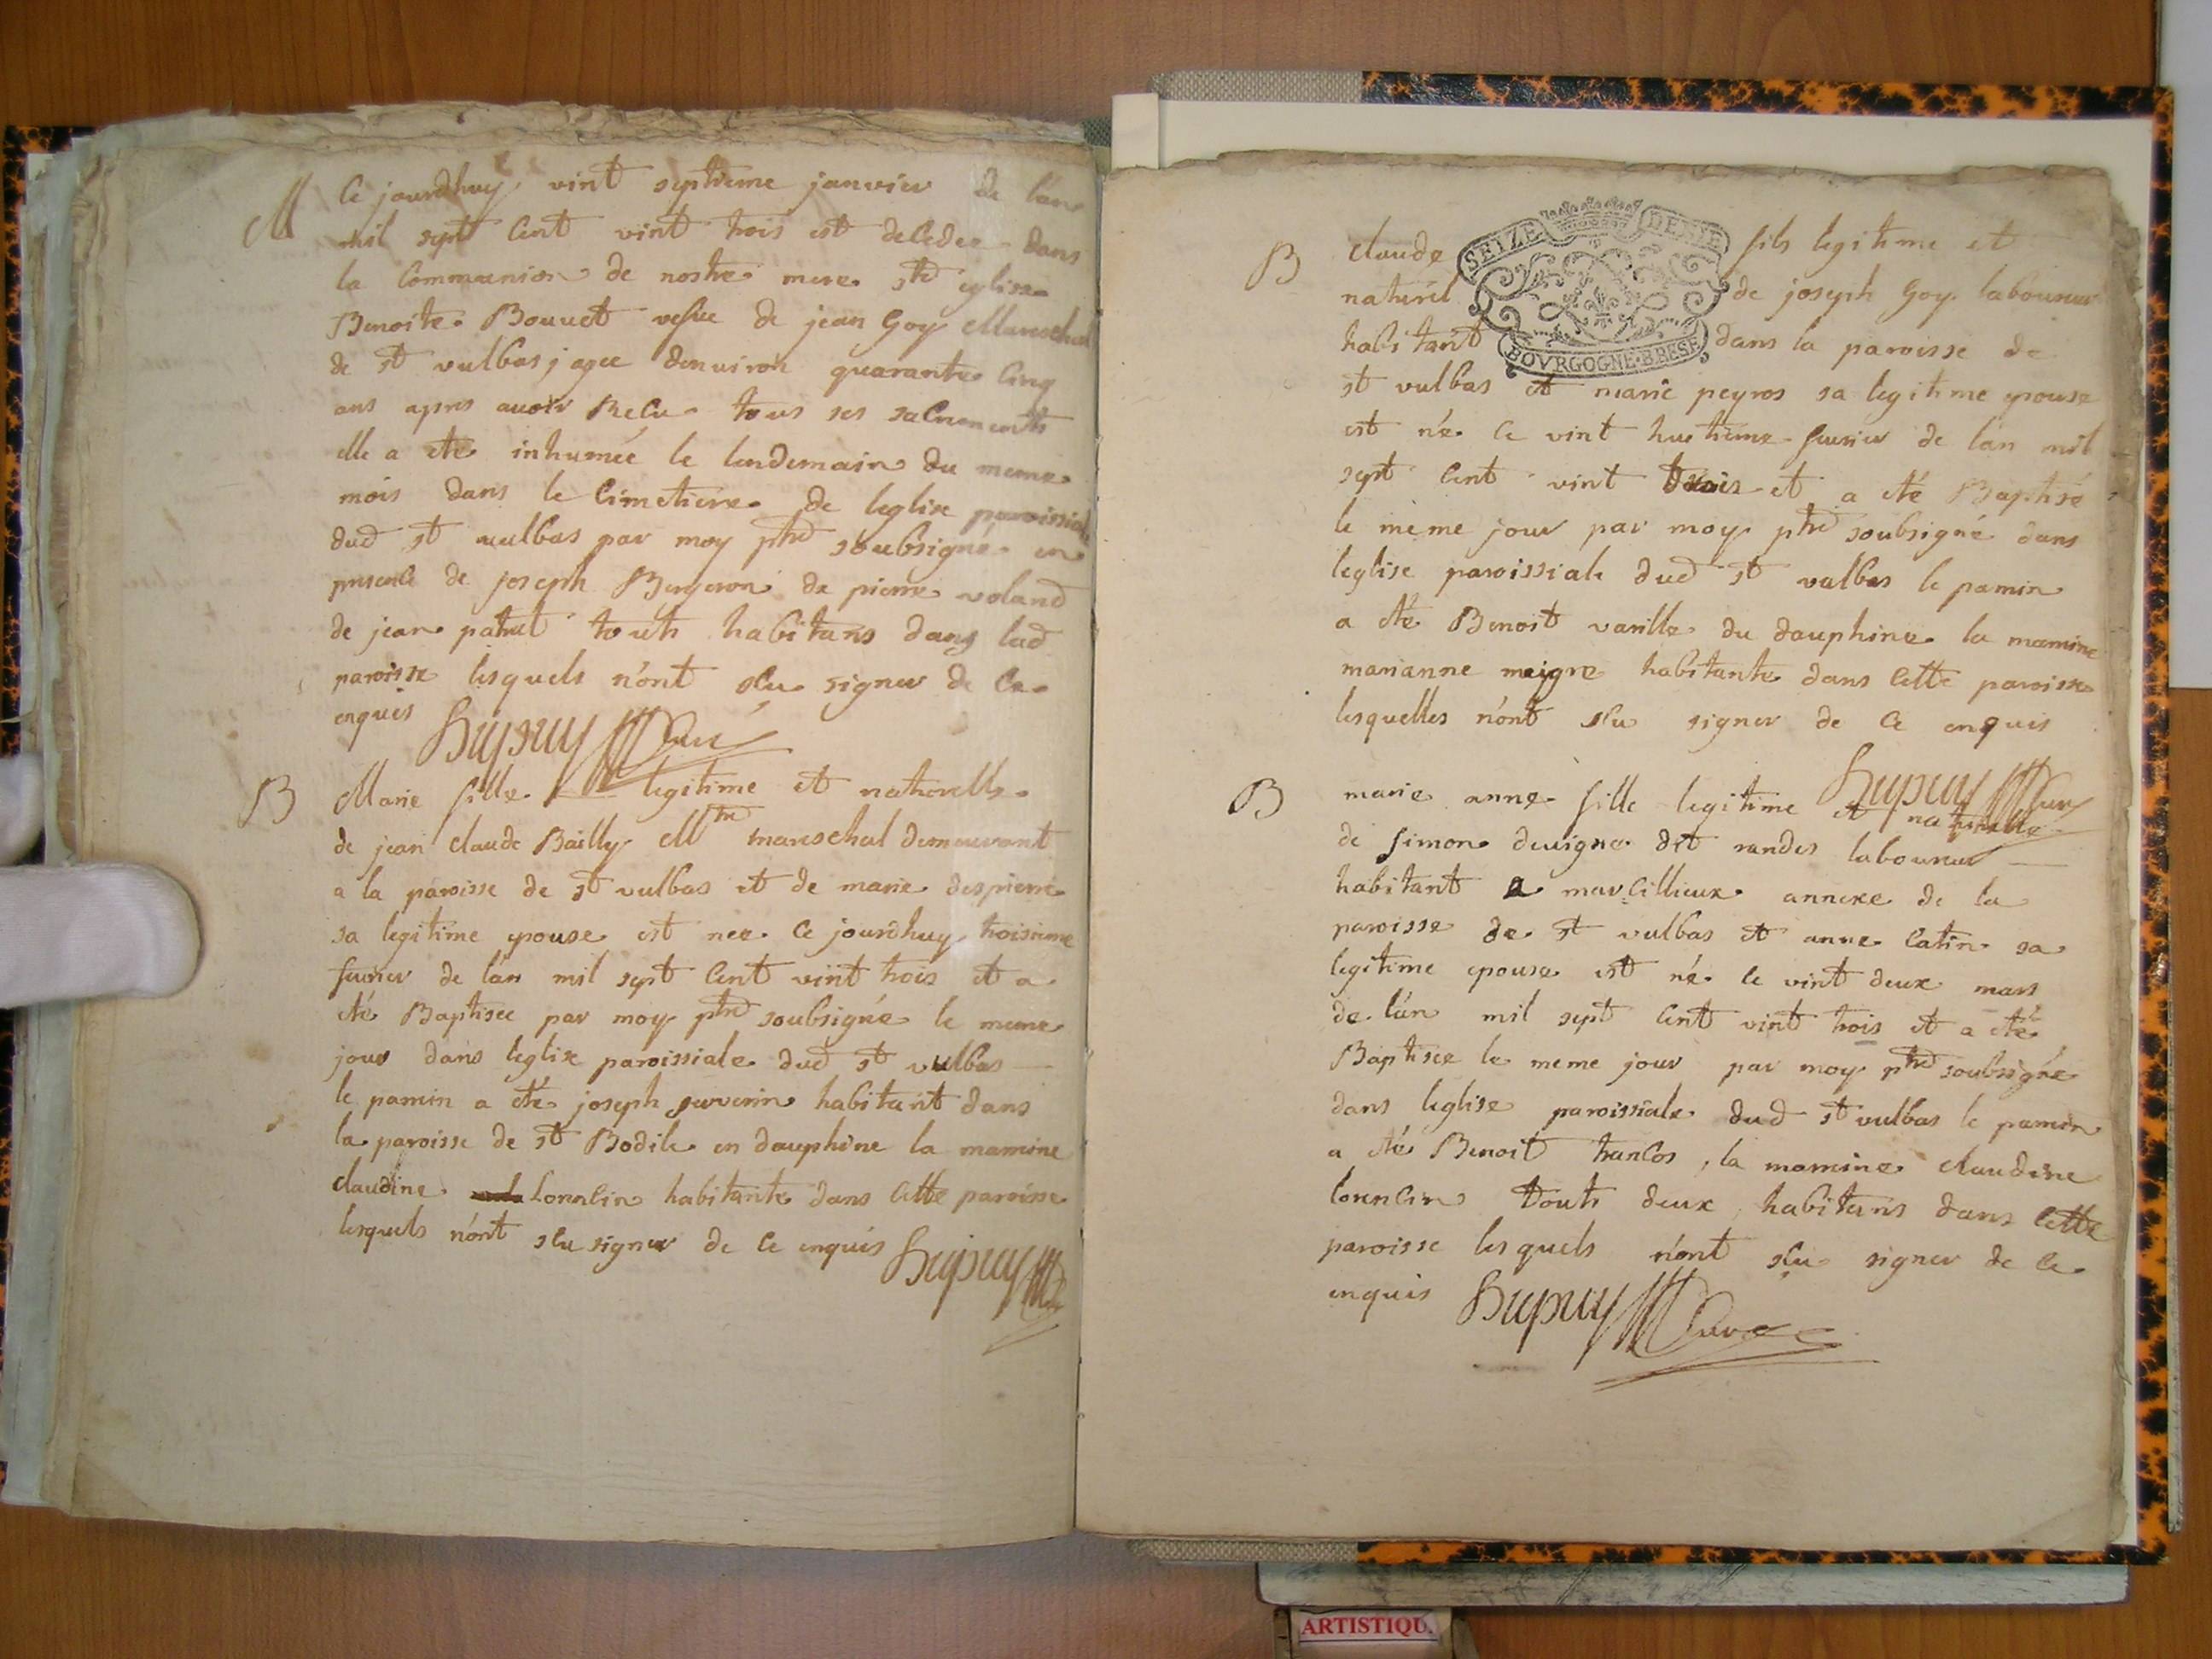 M
Ce jourdhuy vint septieme janvier de l'an
mil sept cent vint trois est decedee dans
la Communion de nostre mere ste eglise
Benoite Bouvet vefue de jean Goy Mareschal
de st vulbas, agee denuiron quarante Cinq
ans apres auoir Recu tous ses sacrements
elle a ete inhumée le lendemain du meme
mois dans le Cimetiere de leglise paroissiale
dud st vulbas par moy ptre soubsigné en
presence de joseph Bergeron de pierre voland
de jean patut touts habitans dans lad
paroisse lesquels n'ont scu signer de ce
enquis Dupuy Curé
B
Marie fille legitime et naturelle
de jean claude Bailly Mtre mareschal demeurant
a la paroisse de st vulbas et de marie despierre
sa legitime epouse est nee ce jourdhuy troisieme
feurier de l'an mil sept cent vint trois et a
eté Baptisee par moy ptre soubsigné le meme
jour dans leglise paroissiale dud st vulbas
le parrin a eté joseph habitant dans
la paroisse de st Bodile en dauphine la marrine
claudine Lorncin habitante dans cette paroisse
lesquels n'ont scu signer de ce enquis Dupuy
SEIZE DENIE
BOVRGOGNE·BRESE
B
claude fils legitime et
naturel de joseph Goy laboureur
habitant dans la paroisse de
st vulbas et marie peyros sa legitime epouse
est né le vint huitieme feurier de l'an mil
sept cent vint trois et a eté Baptisé
le meme jour par moy ptre soubsigné dans
leglise paroissiale dud st vulbas le parrin
a eté Benoit varille du dauphine la marrine
marianne meigre habitante dans cette paroisse
lesquelles n'ont scu signer de ce enquis
Dupuy Curé
B
marie anne fille legitime et naturelle
de simon deuigne dit randes laboureur
habitant a marcillieux annexe de la
paroisse de st vulbas et anne Catin sa
legitime epouse est né le vint deux mars
de l'an mil sept cent vint trois et a eté
Baptisee le meme jour par moy ptre soubsigné
dans leglise paroissiale dud st vulbas le parrin
a eté Benoit trancos, la marrine claudine
lorncin touts deux habitans dans cette
paroisse lesquels n'ont scu signer de ce
enquis Dupuy Curé
ARTISTIQU